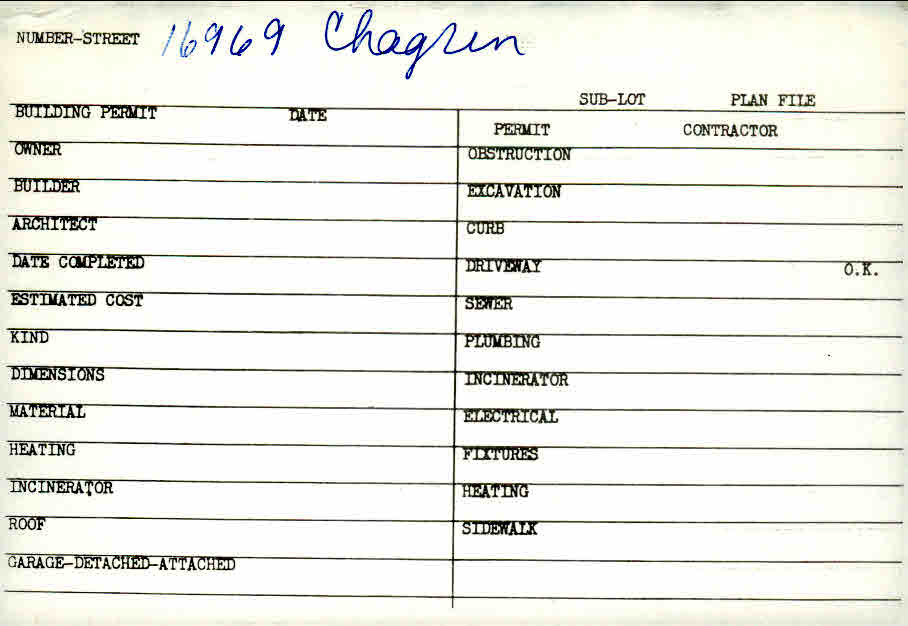 NUMBER-STREET 16969 Chagrin
SUB-LOT PLAN FILE
BUILDING PERMIT DATE
PERMIT CONTRACTOR
OWNER
OBSTRUCTION
BUILDER
EXCAVATION
ARCHITECT
CURB
DATE COMPLETED
DRIVEWAY O.K.
ESTIMATED COST
SEWER
KIND
PLUMBING
DIMENSIONS
INCINERATOR
MATERIAL
ELECTRICAL
HEATING
FIXTURES
INCINERATOR
HEATING
ROOF
SIDEWALK
GARAGE-DETACHED-ATTACHED